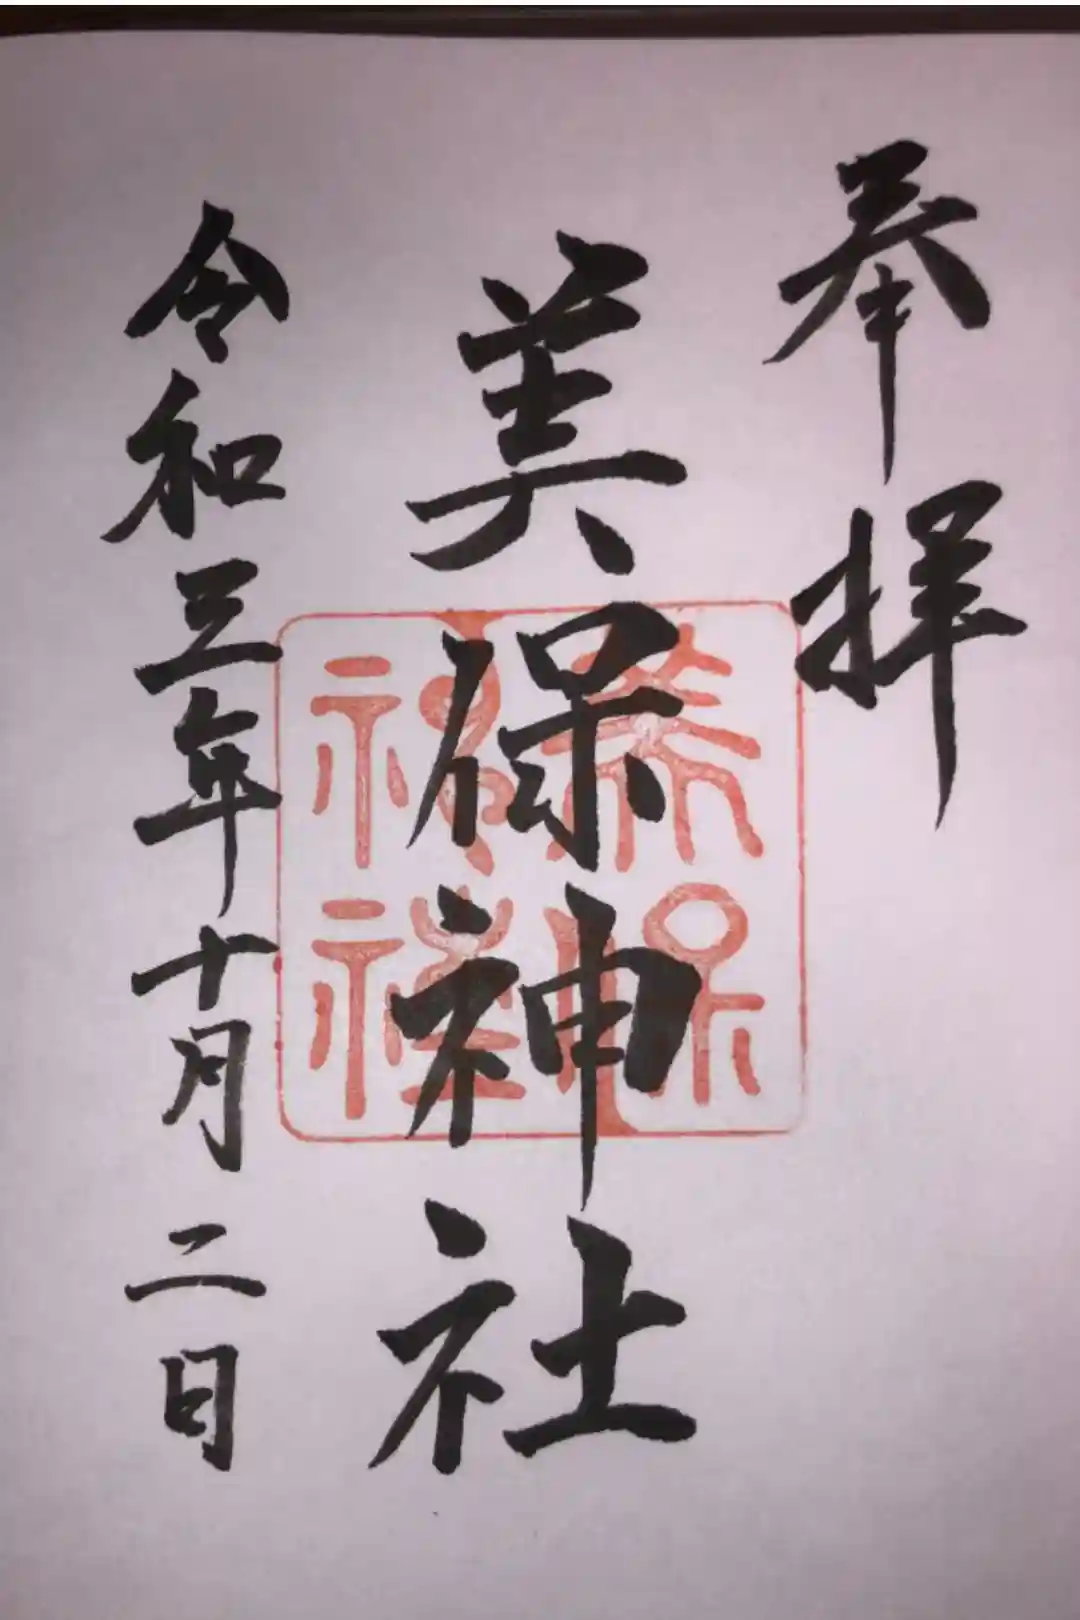 奉拝
美保神社
令和三年十月二日
美保
神社